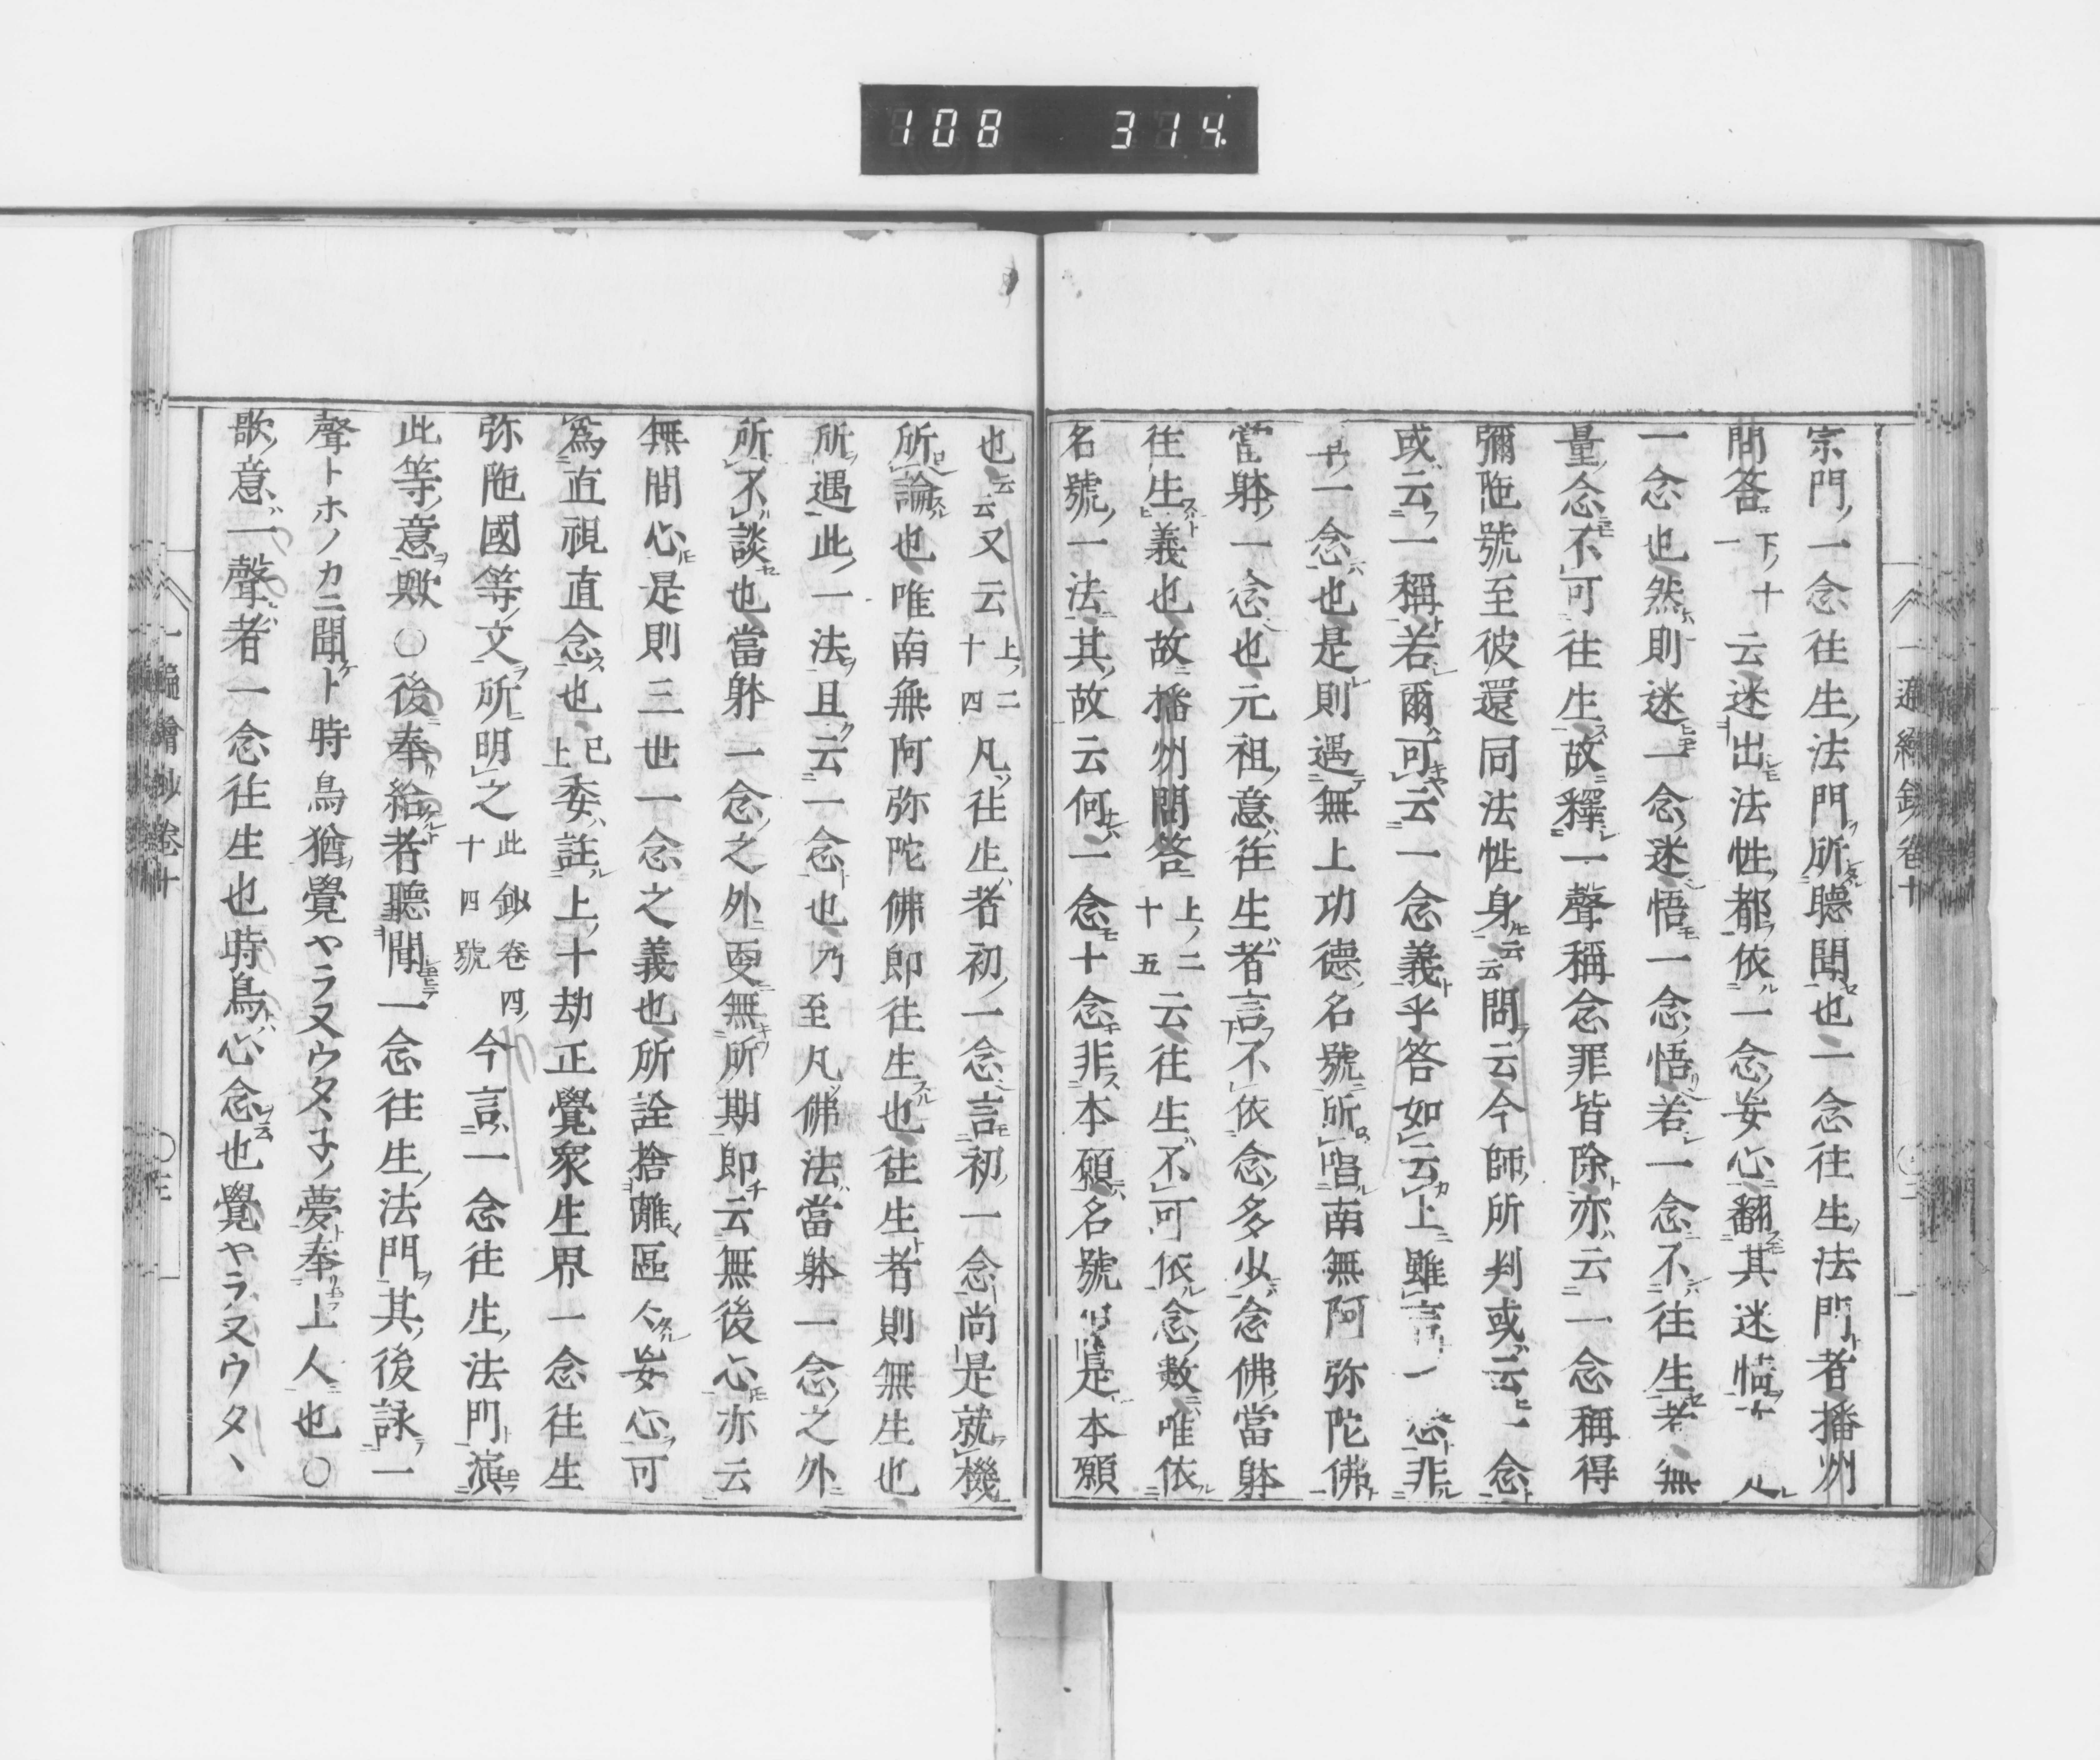 108 314
宗門一念往生法門所聽聞也一念往生法門者播州
問答下十一云迷出法性都依一念妄心翻其迷情
一念也然則迷一念迷悟一念悟若一念不往生者無
量念不可往生故釋一聲稱念罪皆除亦云一念稱得
彌陁號至彼還同法性身云云問云今師所判或云一念
或云一稱若爾可云一念義乎答如云上雖言一念非
一念也是則遇無上功德名號所唱南無阿弥陀佛
當躰一念也元祖意往生者言不依念多少念佛當躰
往生義也故播州問答上二十五云往生不可依念數唯依
名號一法其故云何一念十念非本願名號是本願
也云云又云上二十四凡往生者初一念言初一念尚是就機
所論也唯南無阿弥陀佛即往生也往生者則無生也
所遇此一法且云一念也乃至凡佛法當躰一念之外
所不談也當躰一念之外更無所期即云無後心亦云
無間心是則三世一念之義也所詮捨離區々妄心可
爲直視直念也已上委註上十劫正覺衆生界一念往生
弥陁國等文所明之此鈔卷四十四號今言一念往生法門演
此等意歟○後奉給者聽聞一念往生法門其後詠一
聲トホノカニ聞ト時鳥猶覺ヤラヌウタヽ子ノ夢奉上人也○
歌意一聲者一念往生也時鳥心念也覺ヤラヌウタヽ
一遍繪鈔卷十